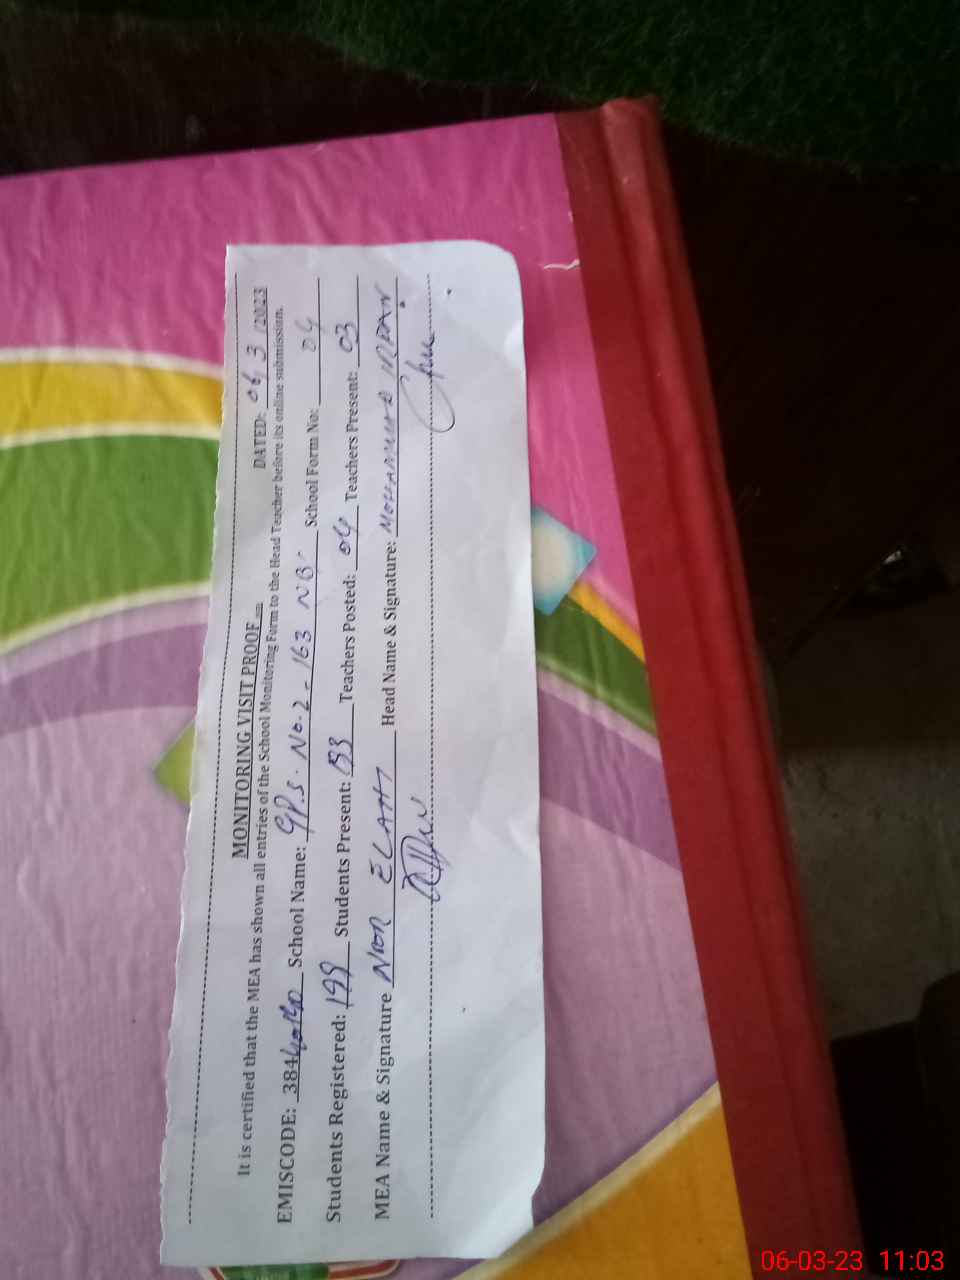 MONITORING VISIT PROOF
DATED: 06, 3 /2023
It is certified that the MEA has shown all entries of the School Monitoring Form to the Head Teacher before its online submission.
EMISCODE: 384 School Name: GP.S. No. 2 - 163 NB School Form No: 04
Students Registered: 199 Students Present: Teachers Posted: 04 Teachers Present: 03
MEA Name & Signature NOOR ELAHI Head Name & Signature: MOHAMMAD IRFAN
06-03-23 11:03